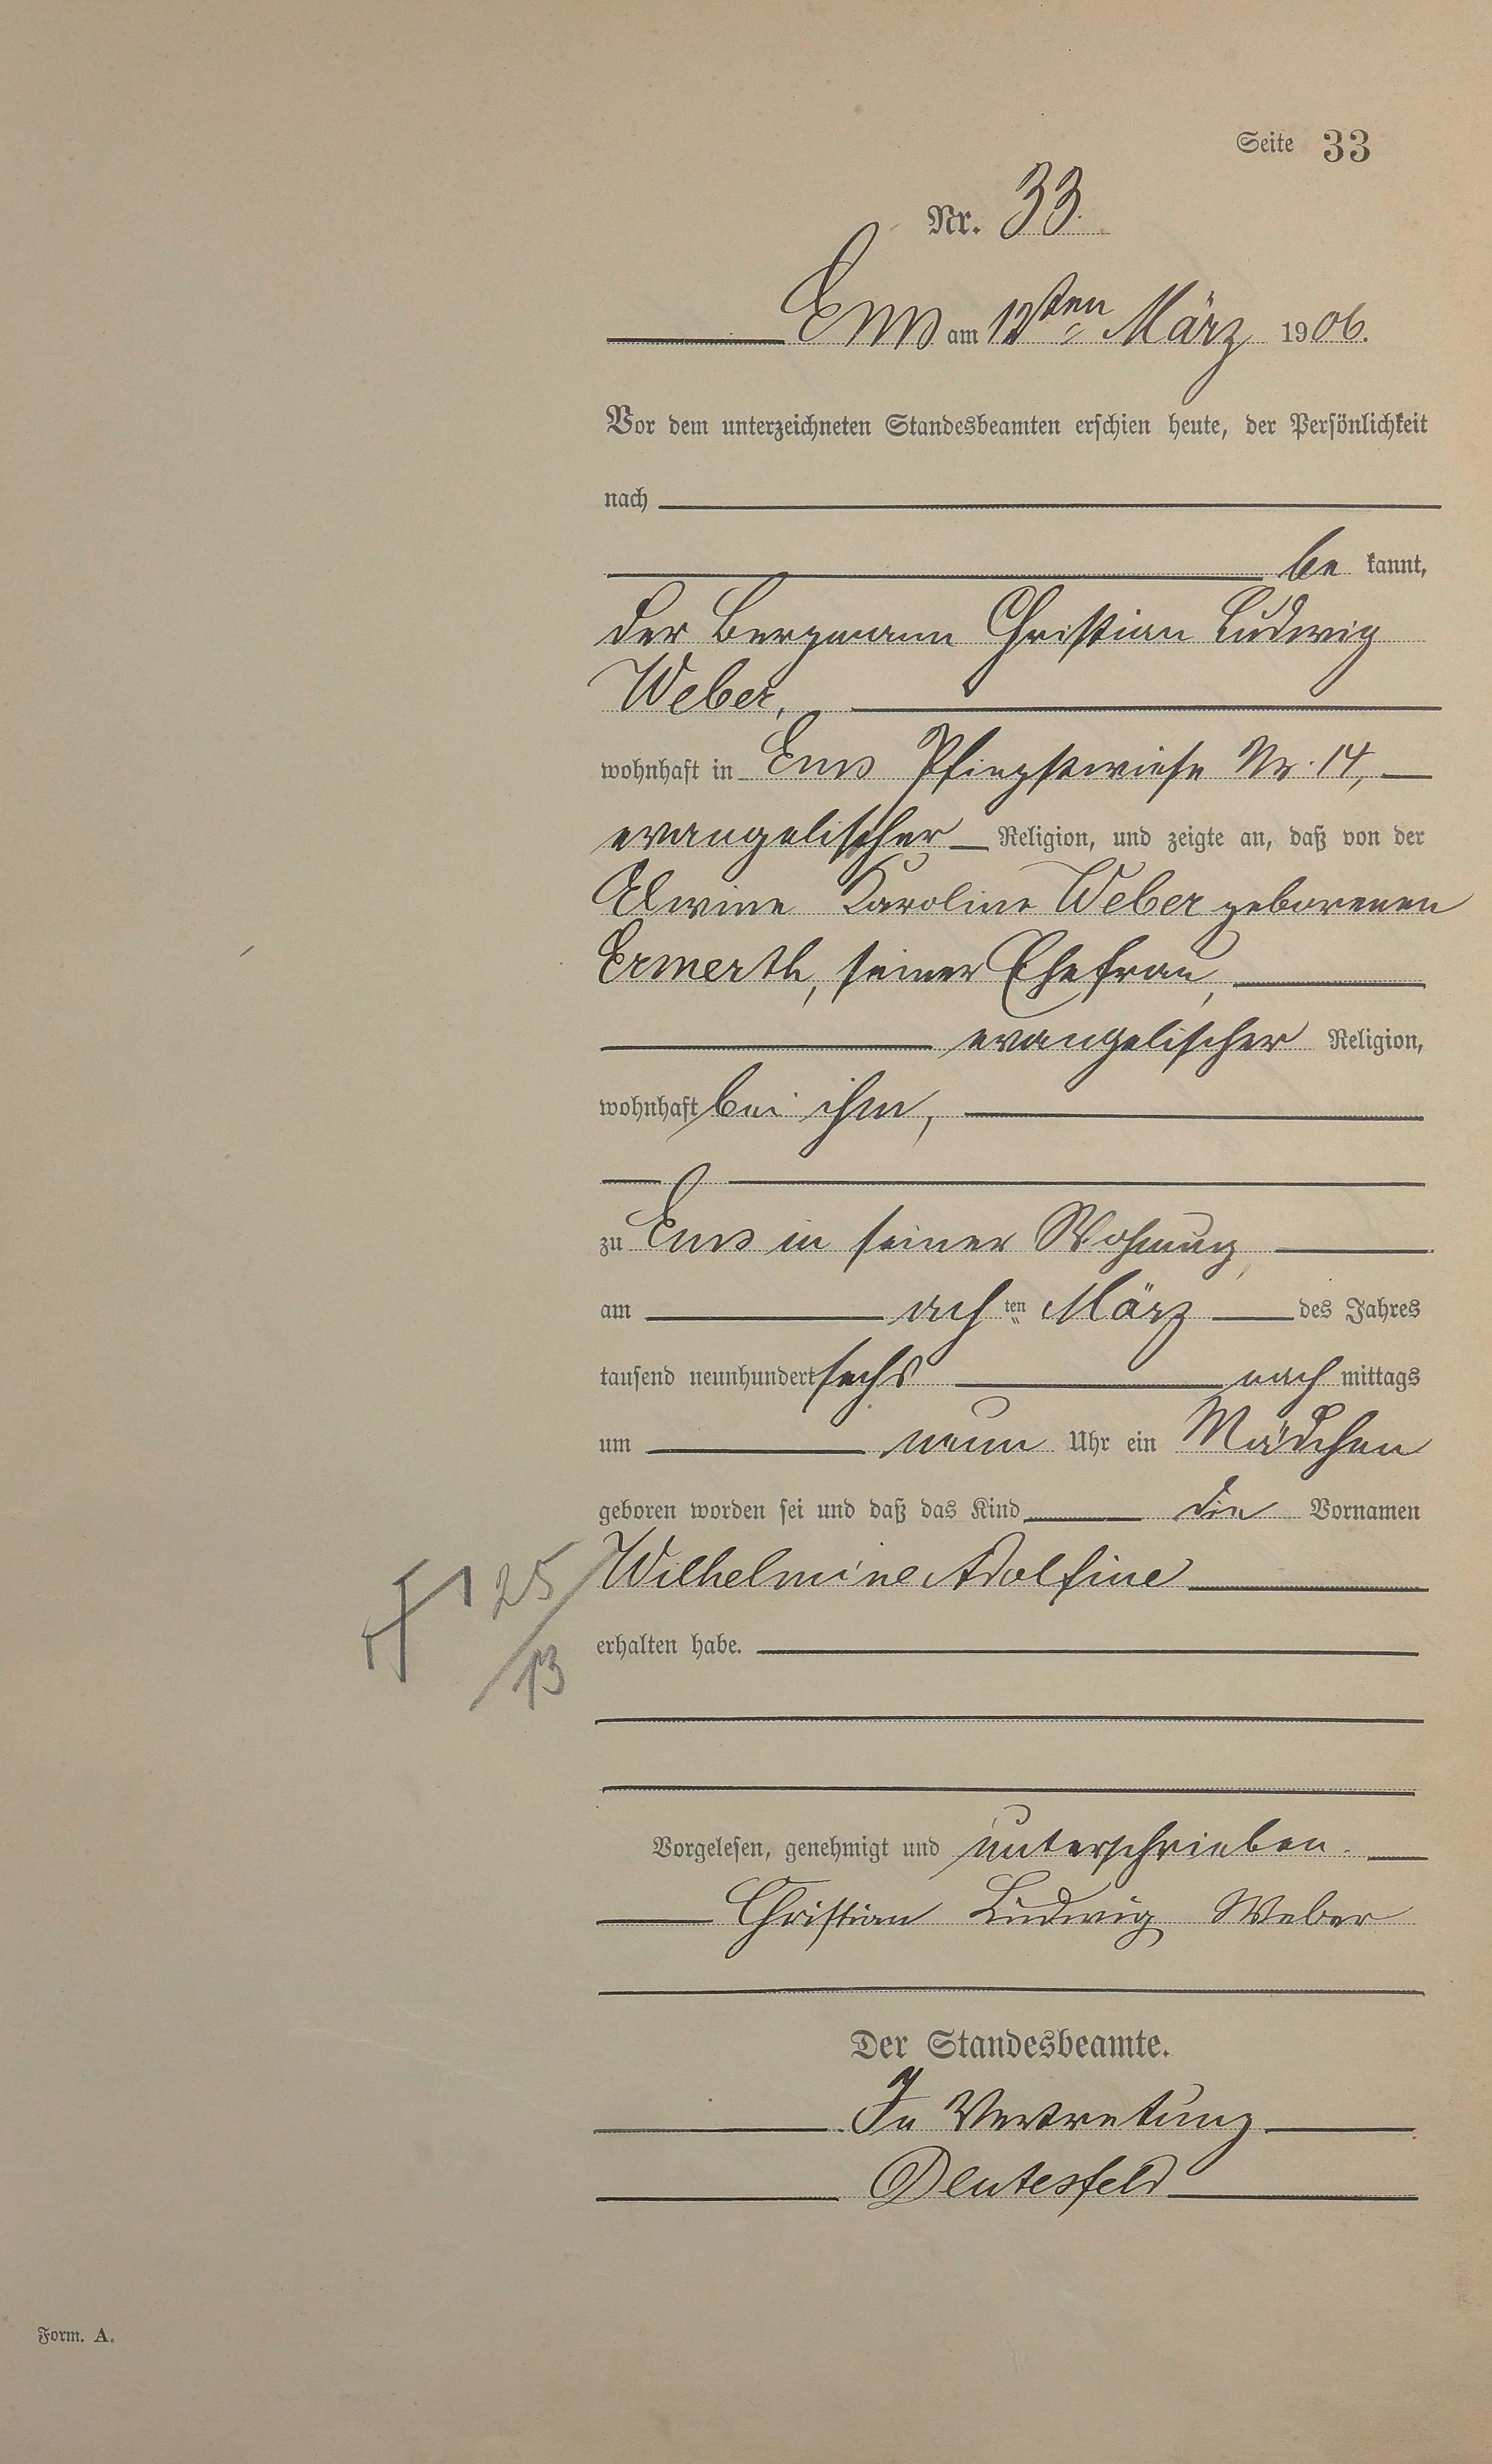 Seite 33
Nr. 33.
Ems am 12ten März 1906.
Vor dem unterzeichneten Standesbeamten erschien heute, der Persönlichkeit
nach
be kannt,
der Bergmann Christian Ludwig
Weber,
wohnhaft in Ems Pfingstwiese Nr. 14,
evangelischer Religion, und zeigte an, daß von der
Elwine Karoline Weber geborenen
Ermerth, seiner Ehefrau,
evangelischer Religion,
wohnhaft bei ihm,
zu Ems in seiner Wohnung,
am ach ten März des Jahres
tausend neunhundert sechs nach mittags
um neun Uhr ein Mädchen
geboren worden sei und daß das Kind die Vornamen
Wilhelmine Adolfine
25/13
erhalten habe.
Vorgelesen, genehmigt und unterschrieben.
Christian Ludwig Weber
Der Standesbeamte.
In Vertretung
Deutesfeld
Form. A.